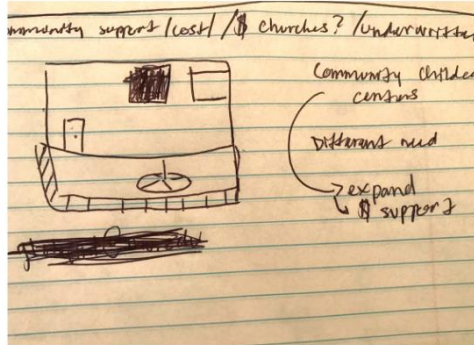 mmunity support / cost / /$ churches? / underwritte
Community childca
centers
Different need
expand
$ support